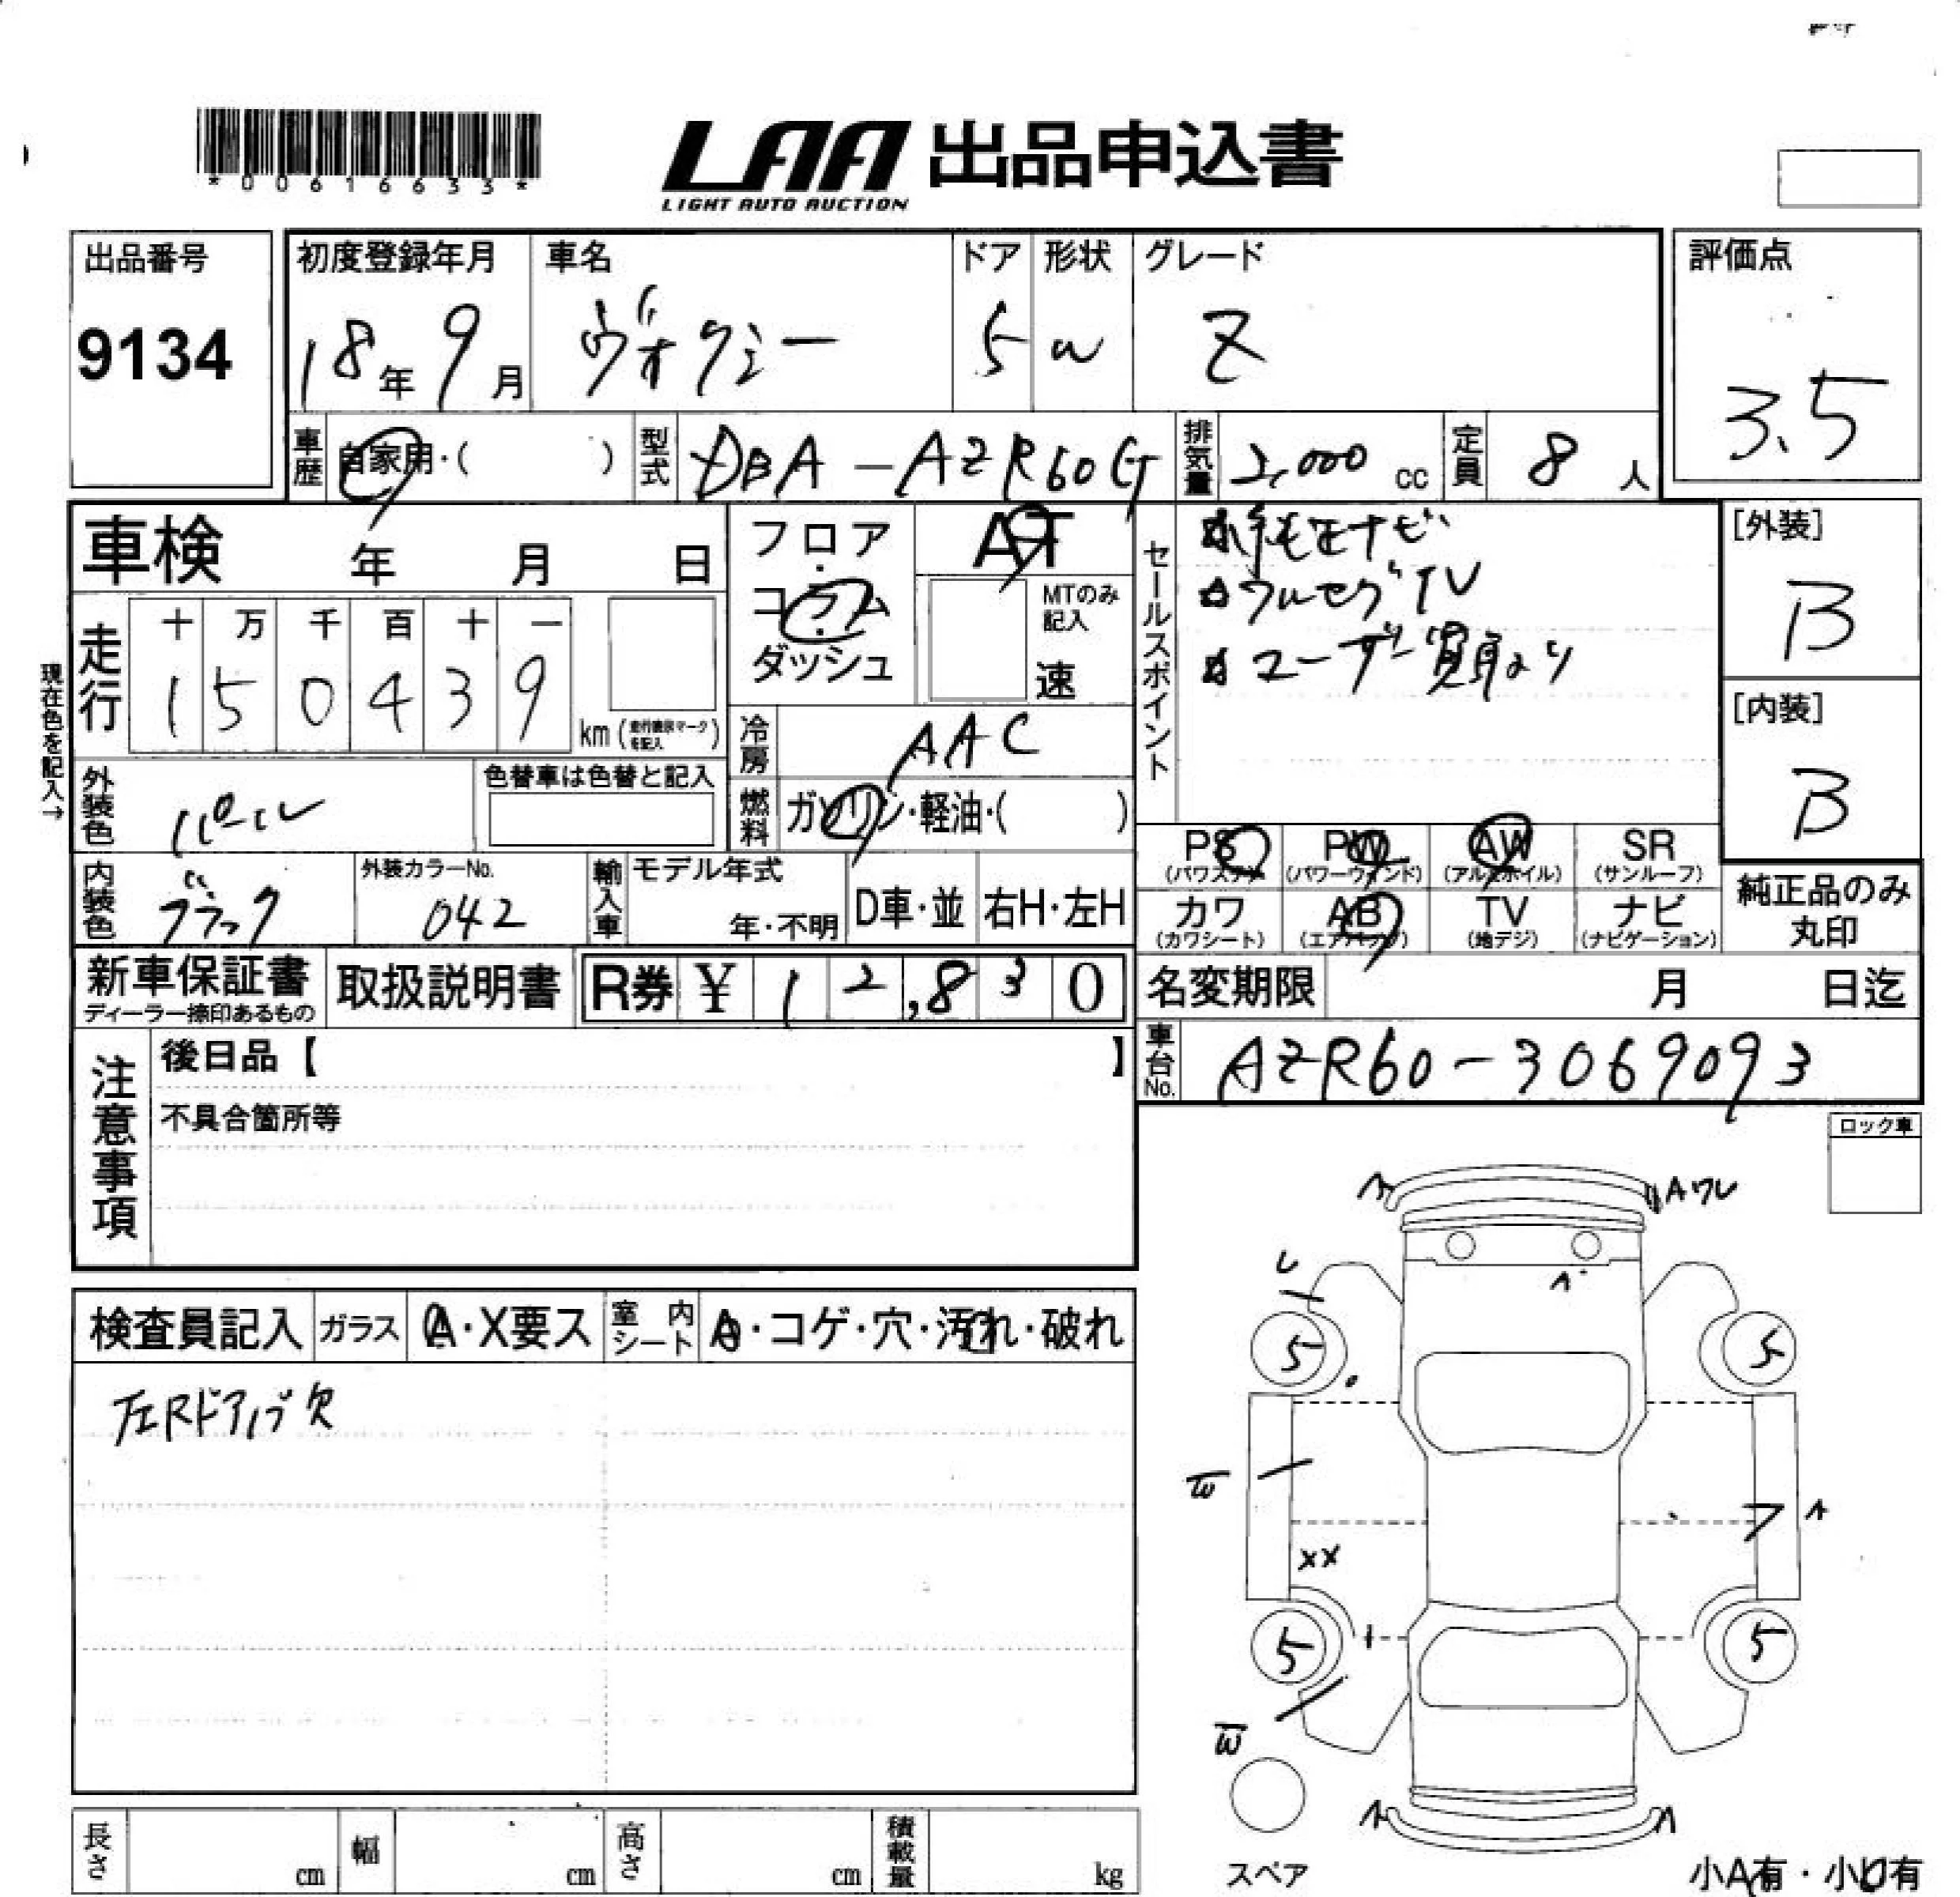 *00616633*
LAA 出品申込書
LIGHT AUTO AUCTION
出品番号
9134
初度登録年月
18年9月
車名
ヴォクシー
ドア
5
形状
W
グレード
Z
評価点
3.5
車歴
自家用・( )
型式
DBA-AZR60G
排気量
2,000 cc
定員
8人
車検 年 月 日
フロア・コラム・ダッシュ
AT
MTのみ記入
速
セールスポイント
☆純正ナビ
☆フルセグTV
☆ユーザー買取より
[外装]
B
[内装]
B
現在色を記入→
走行
十 万 千 百 十 一
1 5 0 4 3 9
km (走行表示マークを記入)
冷房
AAC
外装色
パール
色替車は色替と記入
燃料
ガソリン・軽油・( )
PS (パワステ)
PW (パワーウィンド)
AW (アルミホイル)
SR (サンルーフ)
カワ (カワシート)
AB (エアバッグ)
TV (地デジ)
ナビ (ナビゲーション)
純正品のみ丸印
内装色
ブラック
外装カラーNo.
042
輸入車
モデル年式
年・不明
D車・並
右H・左H
新車保証書
ディーラー捺印あるもの
取扱説明書
R券 ¥ 12,830
名変期限 月 日迄
車台No.
AZR60-3069093
注意事項
後日品【 】
不具合箇所等
ロック車
検査員記入
ガラス
A・X要ス
室内シート
A・コゲ・穴・汚れ・破れ
左Rドアバブ欠
A
Aワレ
U
A
5
5
W
A
XX
5
5
W
A
A
スペア
小A有・小U有
長さ cm
幅 cm
高さ cm
積載量 kg